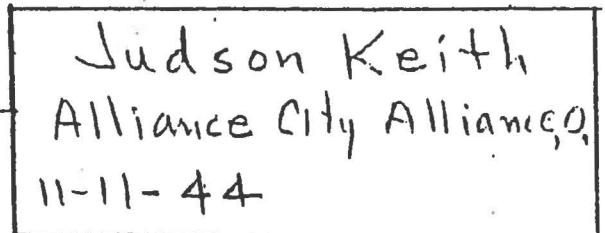 Judson Keith
Alliance City Alliance, O.
11-11-44